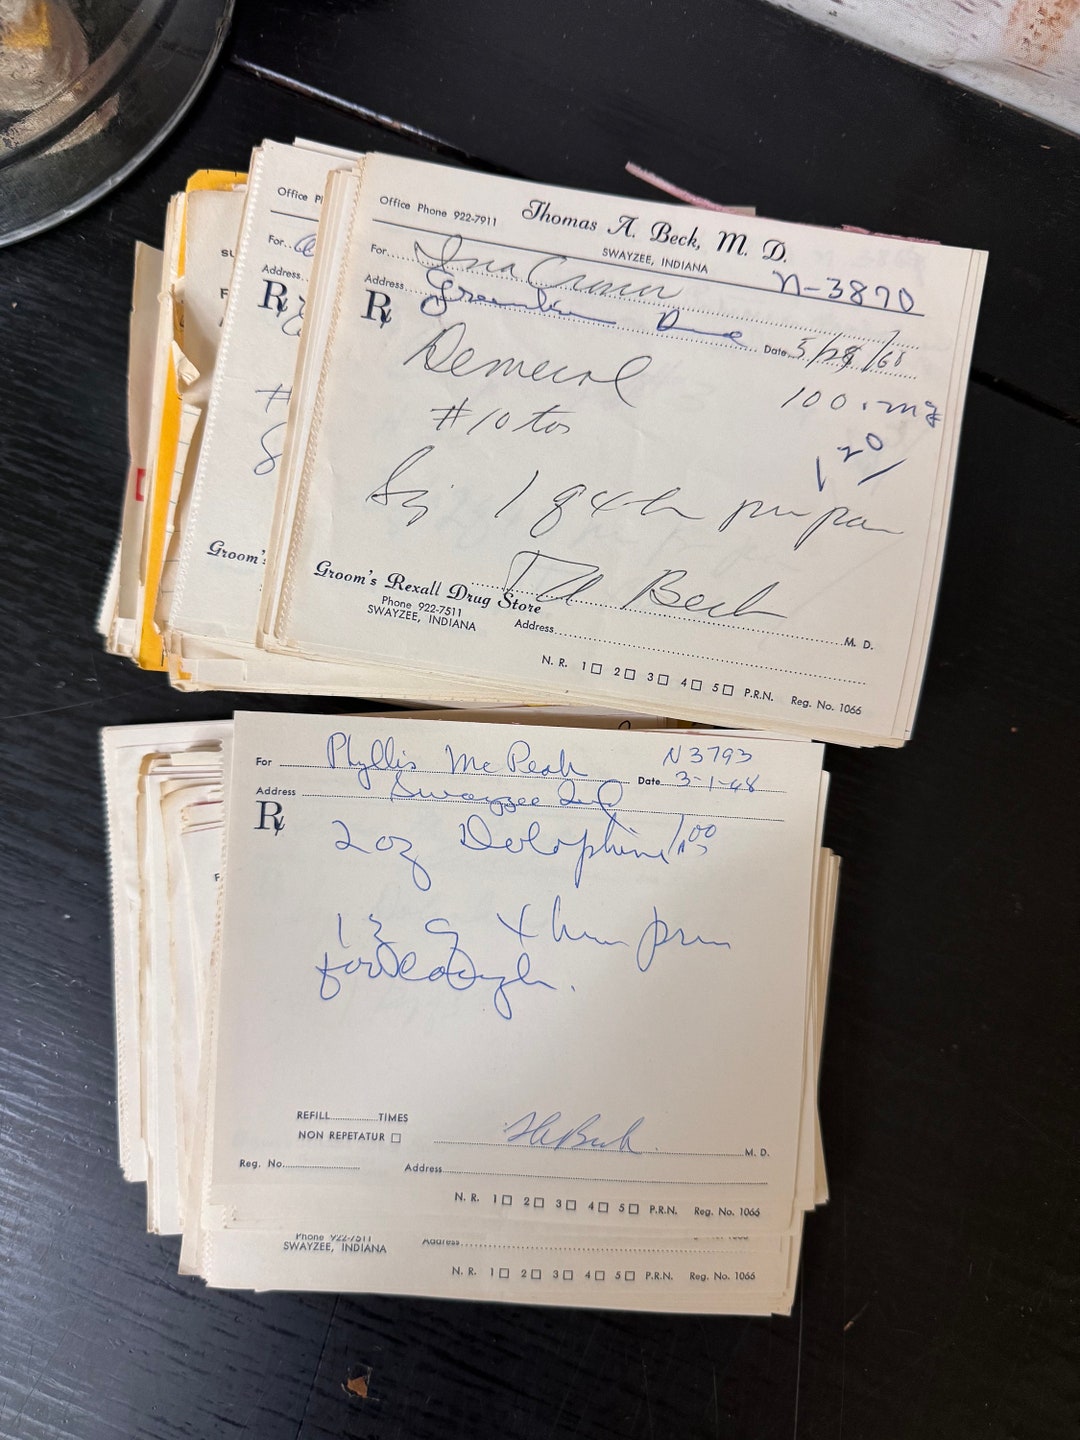 Office Phone 922-7911
Thomas A. Beck, M. D.
SWAYZEE, INDIANA
N-3870
For
Address
Date 5/28/68
Rx
Demerol 100 mg
#10 tos
20
Sig 1 q 4 h prn pain
T A Beck
M. D.
Groom's Rexall Drug Store
Phone 922-7511
SWAYZEE, INDIANA
Address
N. R. 1☐ 2☐ 3☐ 4☐ 5☐ P.R.N. Reg. No. 1066
Office P
For
Address
Rx
#
Groom's
For Phyllis McPeak
N3793
Date 3-1-68
Address Swayzee Ind
Rx
2 oz Dolophine
for cough.
REFILL TIMES
NON REPETATUR ☐
M. D.
Reg. No.
Address
N. R. 1☐ 2☐ 3☐ 4☐ 5☐ P.R.N. Reg. No. 1066
Phone 922-7511
SWAYZEE, INDIANA
Address
N. R. 1☐ 2☐ 3☐ 4☐ 5☐ P.R.N. Reg. No. 1066